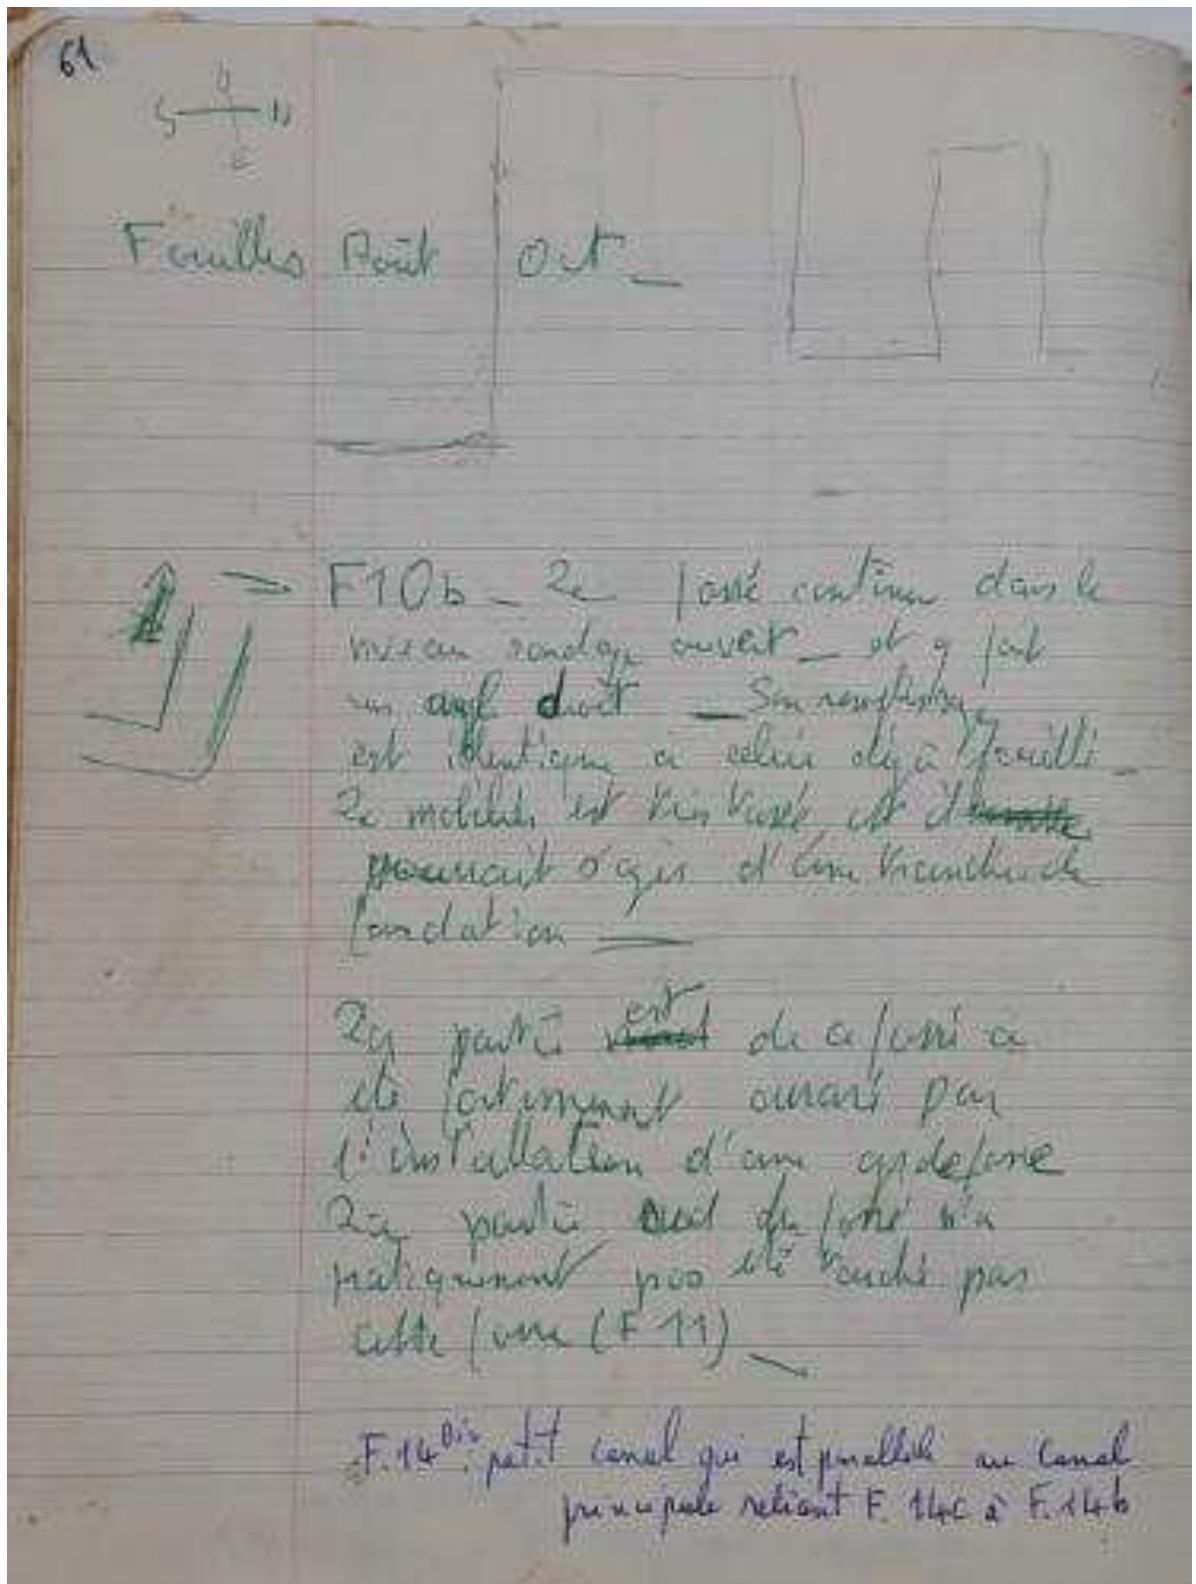 61
O
S N
E
Fouilles Août Oct _
F10b _ Le fossé continu dans le
niveau sondage ouvert _ et y fait
un angle droit _ Son remplissage
est identique a celui déjà fouillé _
Le mobilier est très
pourrait s'agir d'une tranchée de
fondation _
La partie est de ce fossé a
été fortement par
l'installation d'une gr de fosse
La partie sud du fossé n'a
pratiquement pas été touché par
cette fosse (F11) _
F.14 bis : petit canal qui est parallèle au canal
principale reliant F. 14c à F. 14b